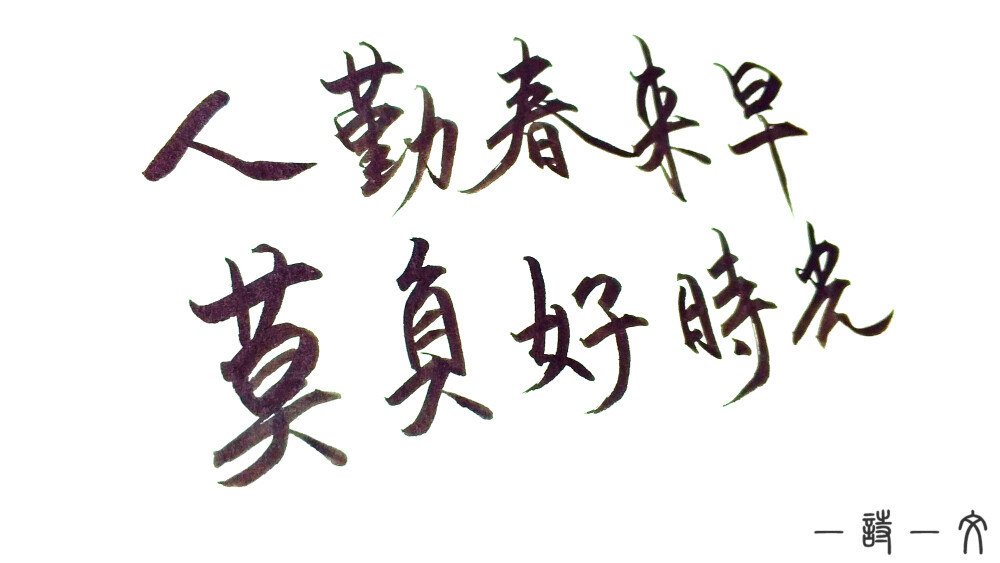 人勤春来早
莫負好時光
一詩一文